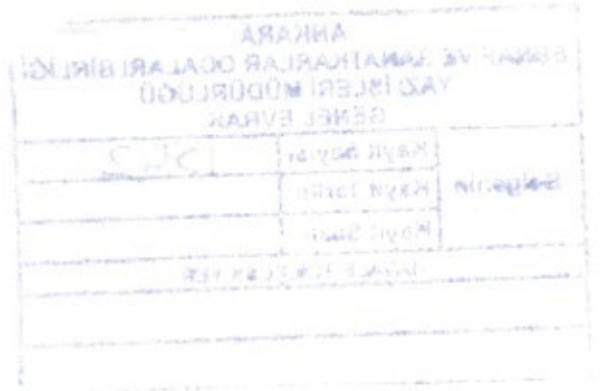 ANKARA
ESNAF VE SANATKARLAR ODALARI BİRLİĞİ
YAZI İŞLERİ MÜDÜRLÜĞÜ
GENEL EVRAK
Belgenin
Kayıt Sayısı
Kayıt Tarihi
Kayıt Saati